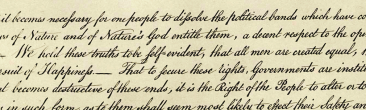 it becomes necessary for one people to dissolve the political bands which have co
es of Nature and of Nature's God entitle them, a decent respect to the op
— We hold these truths to be self-evident, that all men are created equal,
rsuit of Happiness.— That to secure these rights, Governments are instit
t becomes destructive of these ends, it is the Right of the People to alter or to
in such form, as to them shall seem most likely to effect their Safety an